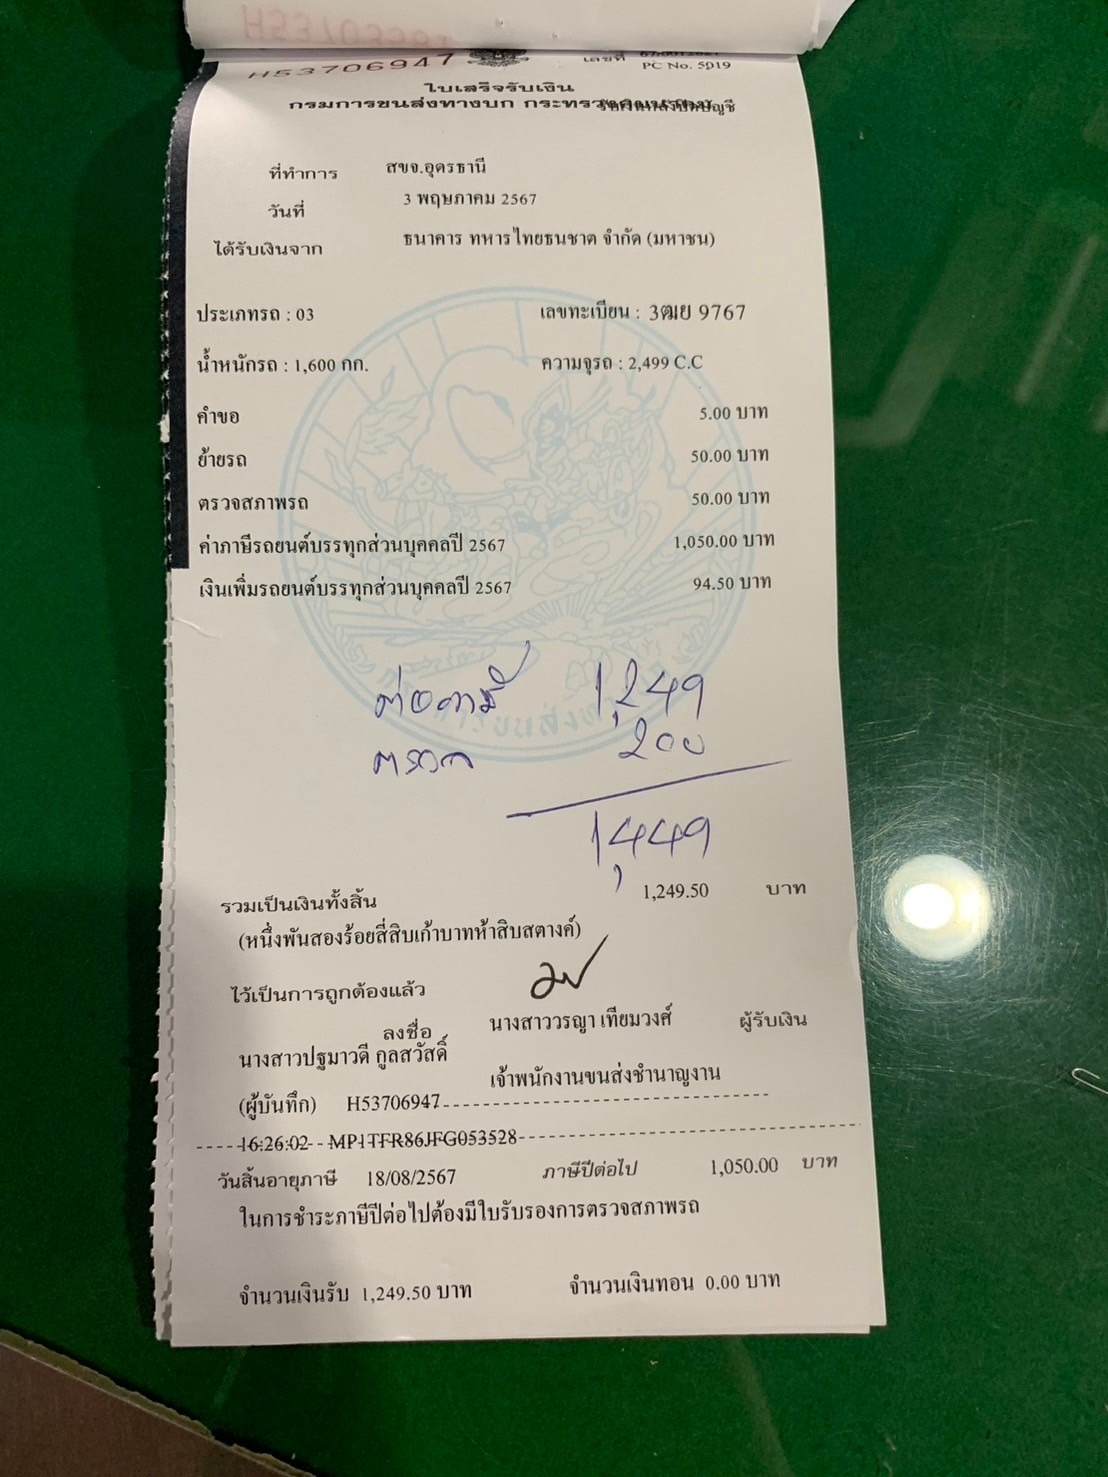 H53706947
เลขที่
PC No. 5019
ใบเสร็จรับเงิน
กรมการขนส่งทางบก
ที่ทำการ สขจ.อุดรธานี
วันที่ 3 พฤษภาคม 2567
ได้รับเงินจาก ธนาคาร ทหารไทยธนชาต จำกัด (มหาชน)
ประเภทรถ : 03 เลขทะเบียน : 3ฒย 9767
น้ำหนักรถ : 1,600 กก. ความจุรถ : 2,499 C.C
คำขอ 5.00 บาท
ย้ายรถ 50.00 บาท
ตรวจสภาพรถ 50.00 บาท
ค่าภาษีรถยนต์บรรทุกส่วนบุคคลปี 2567 1,050.00 บาท
เงินเพิ่มรถยนต์บรรทุกส่วนบุคคลปี 2567 94.50 บาท
ต่อภาษี 1,249
ตรวจ 200
1,449
รวมเป็นเงินทั้งสิ้น 1,249.50 บาท
(หนึ่งพันสองร้อยสี่สิบเก้าบาทห้าสิบสตางค์)
ไว้เป็นการถูกต้องแล้ว
ลงชื่อ นางสาววรญา เทียมวงศ์ ผู้รับเงิน
นางสาวปฐมาวดี กูลสวัสดิ์
เจ้าพนักงานขนส่งชำนาญงาน
(ผู้บันทึก) H53706947
16:26:02 MP1TFR86JFG053528
วันสิ้นอายุภาษี 18/08/2567 ภาษีปีต่อไป 1,050.00 บาท
ในการชำระภาษีปีต่อไปต้องมีใบรับรองการตรวจสภาพรถ
จำนวนเงินรับ 1,249.50 บาท จำนวนเงินทอน 0.00 บาท